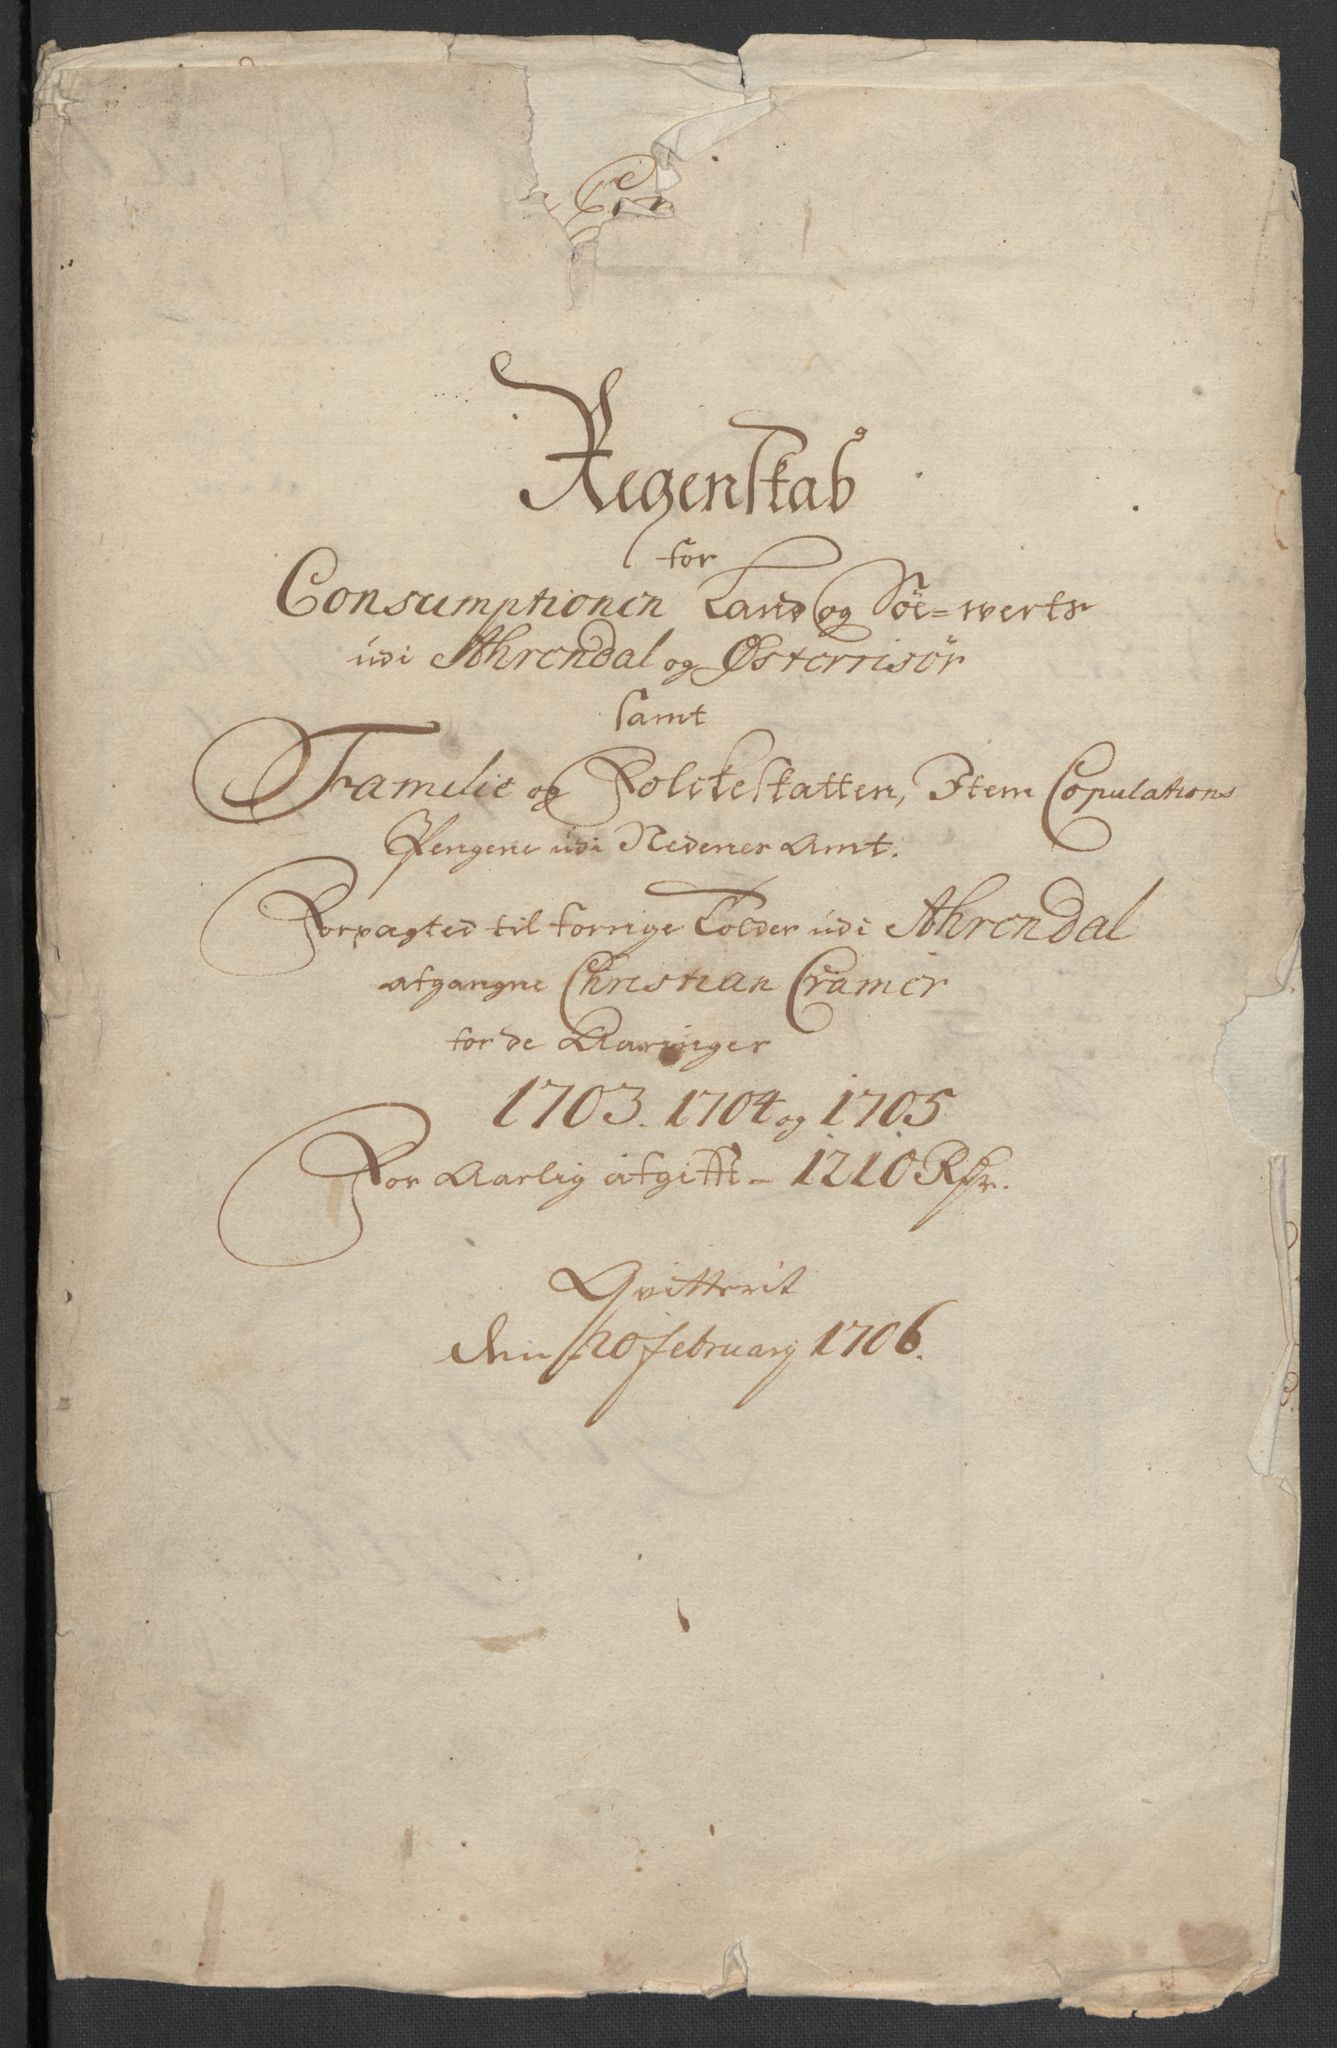 Regenskab
for
Consumptionen Land og Söe=werts
udi Ahrendal og Østerrisör
samt
Familie og Folckeskatten, Item Copulations
Pengene udi Nedenes Amt.
Forpagted til forrige Tolder udi Ahrendal
afgangne Christian Cramer
for de Aaringer
1703. 1704 og 1705
For Aarlig afgifft - 1210 Rdr.
Qvitterit
den 20 february 1706.